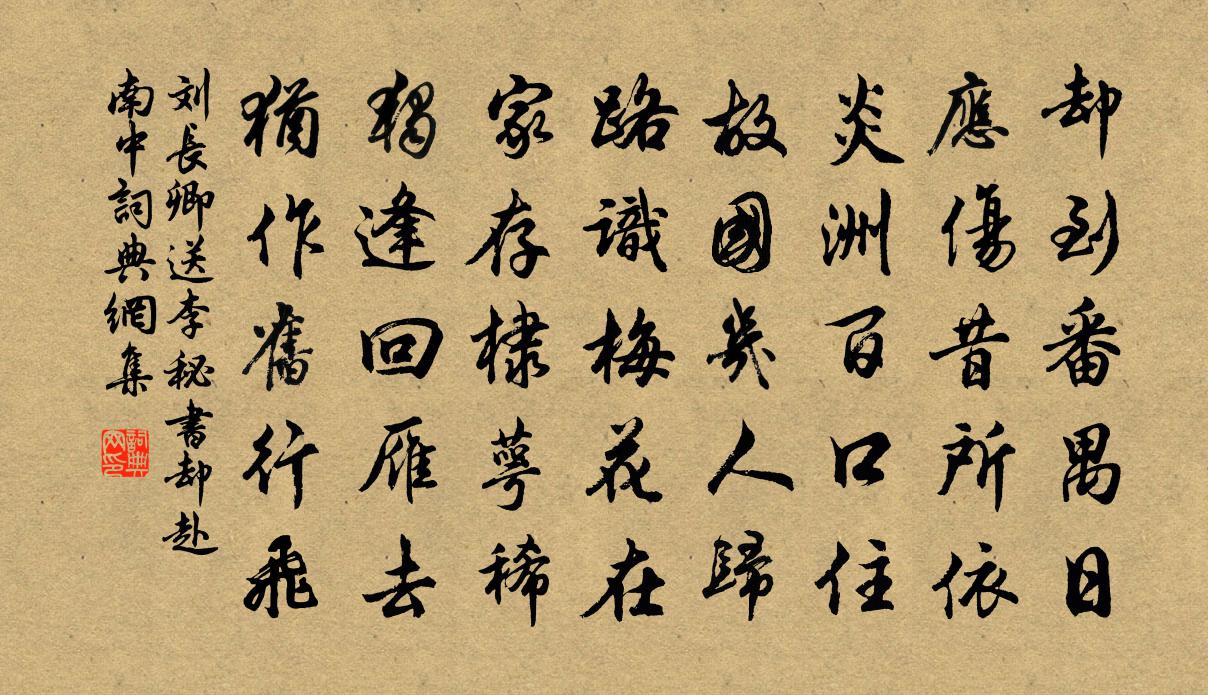 却到番禺日
應傷昔所依
炎洲百口住
故國幾人歸
路識梅花在
家存棣萼稀
獨逢回雁去
猶作舊行飛
刘長卿送李秘書却赴
南中詞典網集
詞典
网印